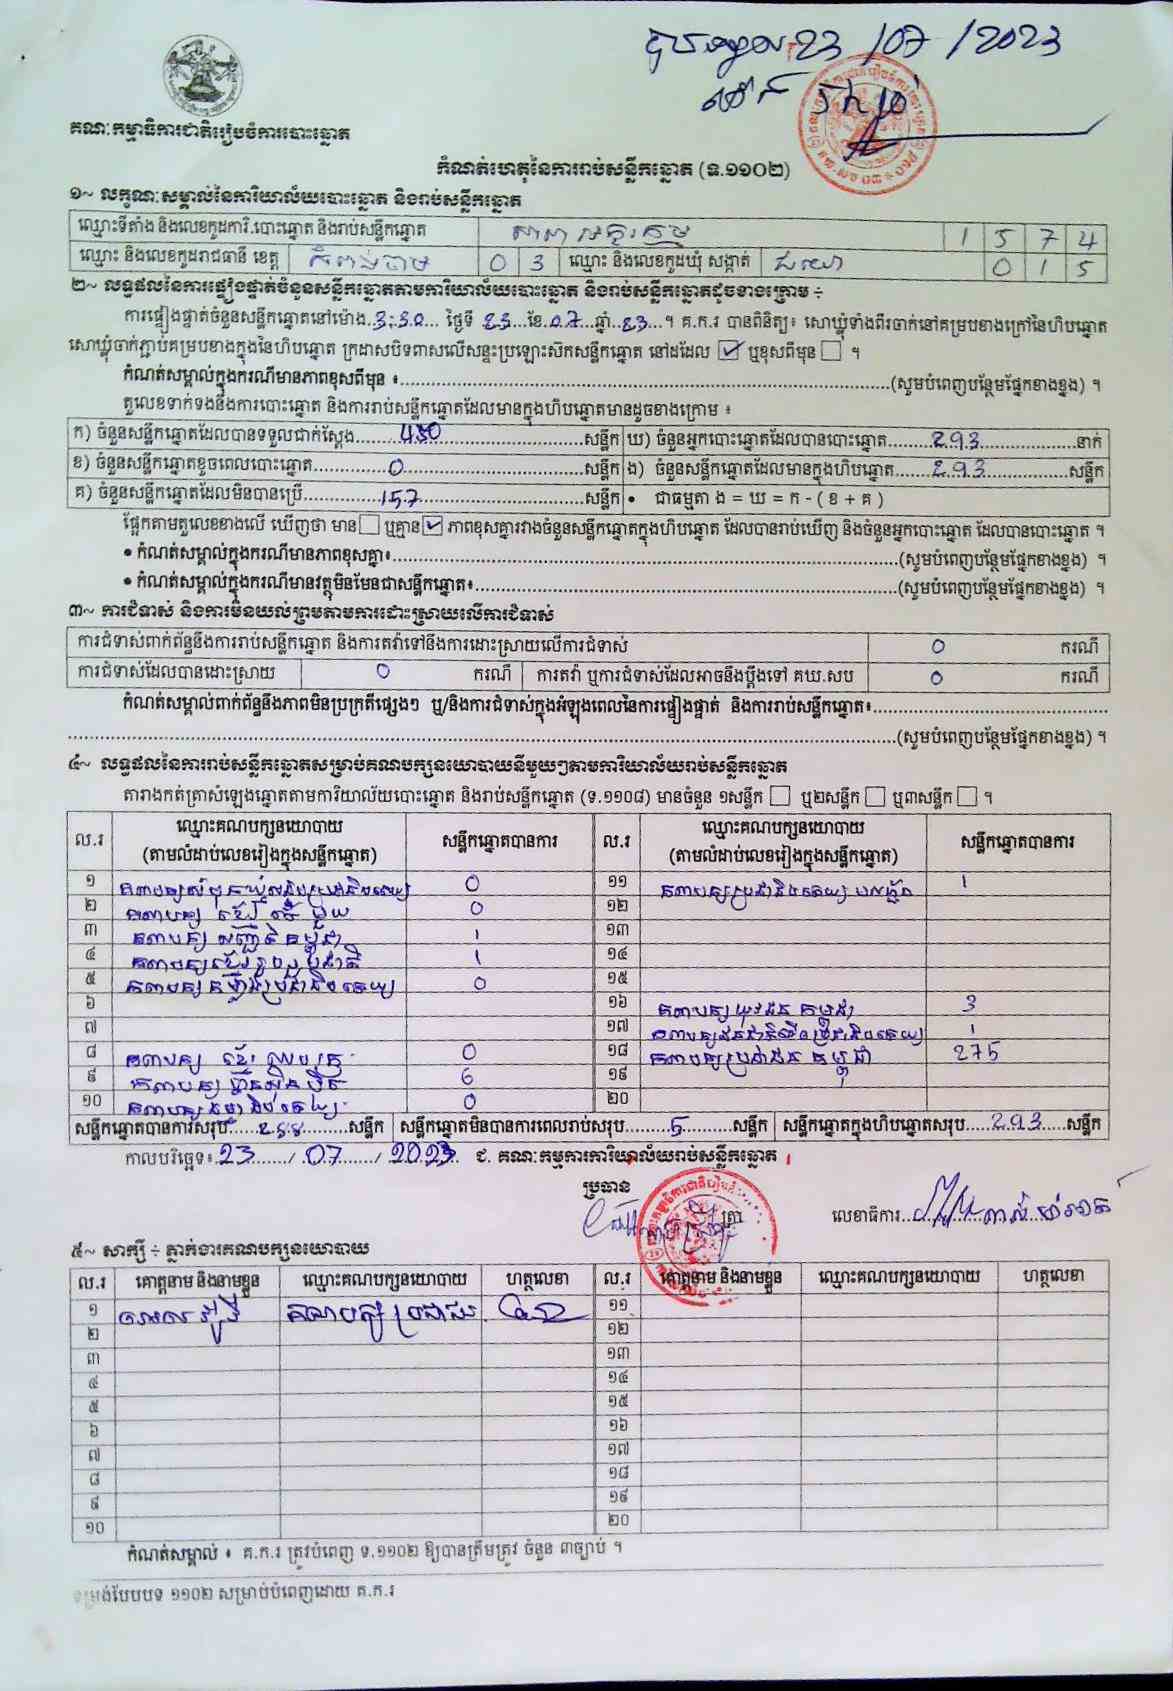 23/07/2023
គណៈកម្មាធិការជាតិរៀបចំការបោះឆ្នោត
កំណត់ហេតុនៃការរាប់សន្លឹកឆ្នោត (ទ.១១០២)
១~ លក្ខណៈសម្គាល់នៃការិយាល័យបោះឆ្នោត និងរាប់សន្លឹកឆ្នោត
ឈ្មោះទីតាំង និងលេខកូដការិ.បោះឆ្នោត និងរាប់សន្លឹកឆ្នោត 1 5 7 4
ឈ្មោះ និងលេខកូដរាជធានី ខេត្ត កំពង់ចាម 0 3 ឈ្មោះ និងលេខកូដឃុំ សង្កាត់ ជយោ 0 1 5
២~ លទ្ធផលនៃការផ្ទៀងផ្ទាត់ចំនួនសន្លឹកឆ្នោតតាមការិយាល័យបោះឆ្នោត និងរាប់សន្លឹកឆ្នោតដូចខាងក្រោម ÷
ការផ្ទៀងផ្ទាត់ចំនួនសន្លឹកឆ្នោតនៅម៉ោង.3:30... ថ្ងៃទី 23...ខែ.07...ឆ្នាំ.23...។ គ.ក.រ បានពិនិត្យ៖ សោឃ្លុំទាំងពីរចាក់នៅគម្របខាងក្រៅនៃហិបឆ្នោត
សោឃ្លុំចាក់ភ្ជាប់គម្របខាងក្នុងនៃហិបឆ្នោត ក្រដាសបិទពាសលើសន្ទះប្រឡោះស៊កសន្លឹកឆ្នោត នៅដដែល ☑ ឬខុសពីមុន ☐ ។
កំណត់សម្គាល់ក្នុងករណីមានភាពខុសពីមុន ៖...(សូមបំពេញបន្ថែមផ្នែកខាងខ្នង) ។
តួលេខទាក់ទងនឹងការបោះឆ្នោត និងការរាប់សន្លឹកឆ្នោតដែលមានក្នុងហិបឆ្នោតមានដូចខាងក្រោម ៖
ក) ចំនួនសន្លឹកឆ្នោតដែលបានទទួលជាក់ស្តែង...450...សន្លឹក ឃ) ចំនួនអ្នកបោះឆ្នោតដែលបានបោះឆ្នោត...293...នាក់
ខ) ចំនួនសន្លឹកឆ្នោតខូចពេលបោះឆ្នោត...0...សន្លឹក ង) ចំនួនសន្លឹកឆ្នោតដែលមានក្នុងហិបឆ្នោត...293...សន្លឹក
គ) ចំនួនសន្លឹកឆ្នោតដែលមិនបានប្រើ...157...សន្លឹក • ជាធម្មតា ង = ឃ = ក - ( ខ + គ )
ផ្អែកតាមតួលេខខាងលើ ឃើញថា មាន ☐ ឬគ្មាន ☑ ភាពខុសគ្នារវាងចំនួនសន្លឹកឆ្នោតក្នុងហិបឆ្នោត ដែលបានរាប់ឃើញ និងចំនួនអ្នកបោះឆ្នោត ដែលបានបោះឆ្នោត ។
• កំណត់សម្គាល់ក្នុងករណីមានភាពខុសគ្នា៖...(សូមបំពេញបន្ថែមផ្នែកខាងខ្នង) ។
• កំណត់សម្គាល់ក្នុងករណីមានវត្ថុមិនមែនជាសន្លឹកឆ្នោត៖...(សូមបំពេញបន្ថែមផ្នែកខាងខ្នង) ។
៣~ ការជំទាស់ និងការមិនយល់ព្រមតាមការដោះស្រាយលើការជំទាស់
ការជំទាស់ពាក់ព័ន្ធនឹងការរាប់សន្លឹកឆ្នោត និងការតវ៉ាទៅនឹងការដោះស្រាយលើការជំទាស់ 0 ករណី
ការជំទាស់ដែលបានដោះស្រាយ 0 ករណី ការតវ៉ា ឬការជំទាស់ដែលអាចនឹងប្តឹងទៅ គឃ.សប 0 ករណី
កំណត់សម្គាល់ពាក់ព័ន្ធនឹងភាពមិនប្រក្រតីផ្សេងៗ ឬ/និងការជំទាស់ក្នុងអំឡុងពេលនៃការផ្ទៀងផ្ទាត់ និងការរាប់សន្លឹកឆ្នោត៖...
...(សូមបំពេញបន្ថែមផ្នែកខាងខ្នង) ។
៤~ លទ្ធផលនៃការរាប់សន្លឹកឆ្នោតសម្រាប់គណបក្សនយោបាយនីមួយៗតាមការិយាល័យរាប់សន្លឹកឆ្នោត
តារាងកត់ត្រាសំឡេងឆ្នោតតាមការិយាល័យបោះឆ្នោត និងរាប់សន្លឹកឆ្នោត (ទ.១១០៨) មានចំនួន ១សន្លឹក ☐ ឬ២សន្លឹក ☐ ឬ៣សន្លឹក ☐ ។
ល.រ ឈ្មោះគណបក្សនយោបាយ (តាមលំដាប់លេខរៀងក្នុងសន្លឹកឆ្នោត) សន្លឹកឆ្នោតបានការ ល.រ ឈ្មោះគណបក្សនយោបាយ (តាមលំដាប់លេខរៀងក្នុងសន្លឹកឆ្នោត) សន្លឹកឆ្នោតបានការ
១ គណបក្សសំបុកឃ្មុំសង្គមប្រជាធិបតេយ្យ 0 ១១ គណបក្សប្រជាធិបតេយ្យ មូលដ្ឋាន 1
២ គណបក្ស ខ្មែរ តែ មួយ 0 ១២
៣ គណបក្ស សញ្ជាតិ កម្ពុជា 1 ១៣
៤ គណបក្ស ខ្មែររួបរួមជាតិ 1 ១៤
៥ គណបក្ស កម្លាំងប្រជាធិបតេយ្យ 0 ១៥
៦ ១៦ គណបក្ស យុវជន កម្ពុជា 3
៧ ១៧ គណបក្សជនជាតិដើមប្រជាធិបតេយ្យ 1
៨ គណបក្ស ខ្មែរ 0 ១៨ គណបក្សប្រជាជន កម្ពុជា 275
៩ គណបក្ស ហ្វ៊ុនស៊ិនប៉ិច 6 ១៩
១០ គណបក្ស ធម្មាធិបតេយ្យ 0 ២០
សន្លឹកឆ្នោតបានការសរុប...288...សន្លឹក សន្លឹកឆ្នោតមិនបានការពេលរាប់សរុប...5...សន្លឹក សន្លឹកឆ្នោតក្នុងហិបឆ្នោតសរុប...293...សន្លឹក
កាលបរិច្ឆេទ៖ 23 / 07 / 2023 ជ. គណៈកម្មការការិយាល័យរាប់សន្លឹកឆ្នោត
ប្រធាន
លេខាធិការ
៥~ សាក្សី ÷ ភ្នាក់ងារគណបក្សនយោបាយ
ល.រ គោត្តនាម និងនាមខ្លួន ឈ្មោះគណបក្សនយោបាយ ហត្ថលេខា ល.រ គោត្តនាម និងនាមខ្លួន ឈ្មោះគណបក្សនយោបាយ ហត្ថលេខា
១ គណបក្ស ប្រជាជន ១១
២ ១២
៣ ១៣
៤ ១៤
៥ ១៥
៦ ១៦
៧ ១៧
៨ ១៨
៩ ១៩
១០ ២០
កំណត់សម្គាល់ ៖ គ.ក.រ ត្រូវបំពេញ ទ.១១០២ ឱ្យបានត្រឹមត្រូវ ចំនួន ៣ច្បាប់ ។
ទម្រង់បែបបទ ១១០២ សម្រាប់បំពេញដោយ គ.ក.រ